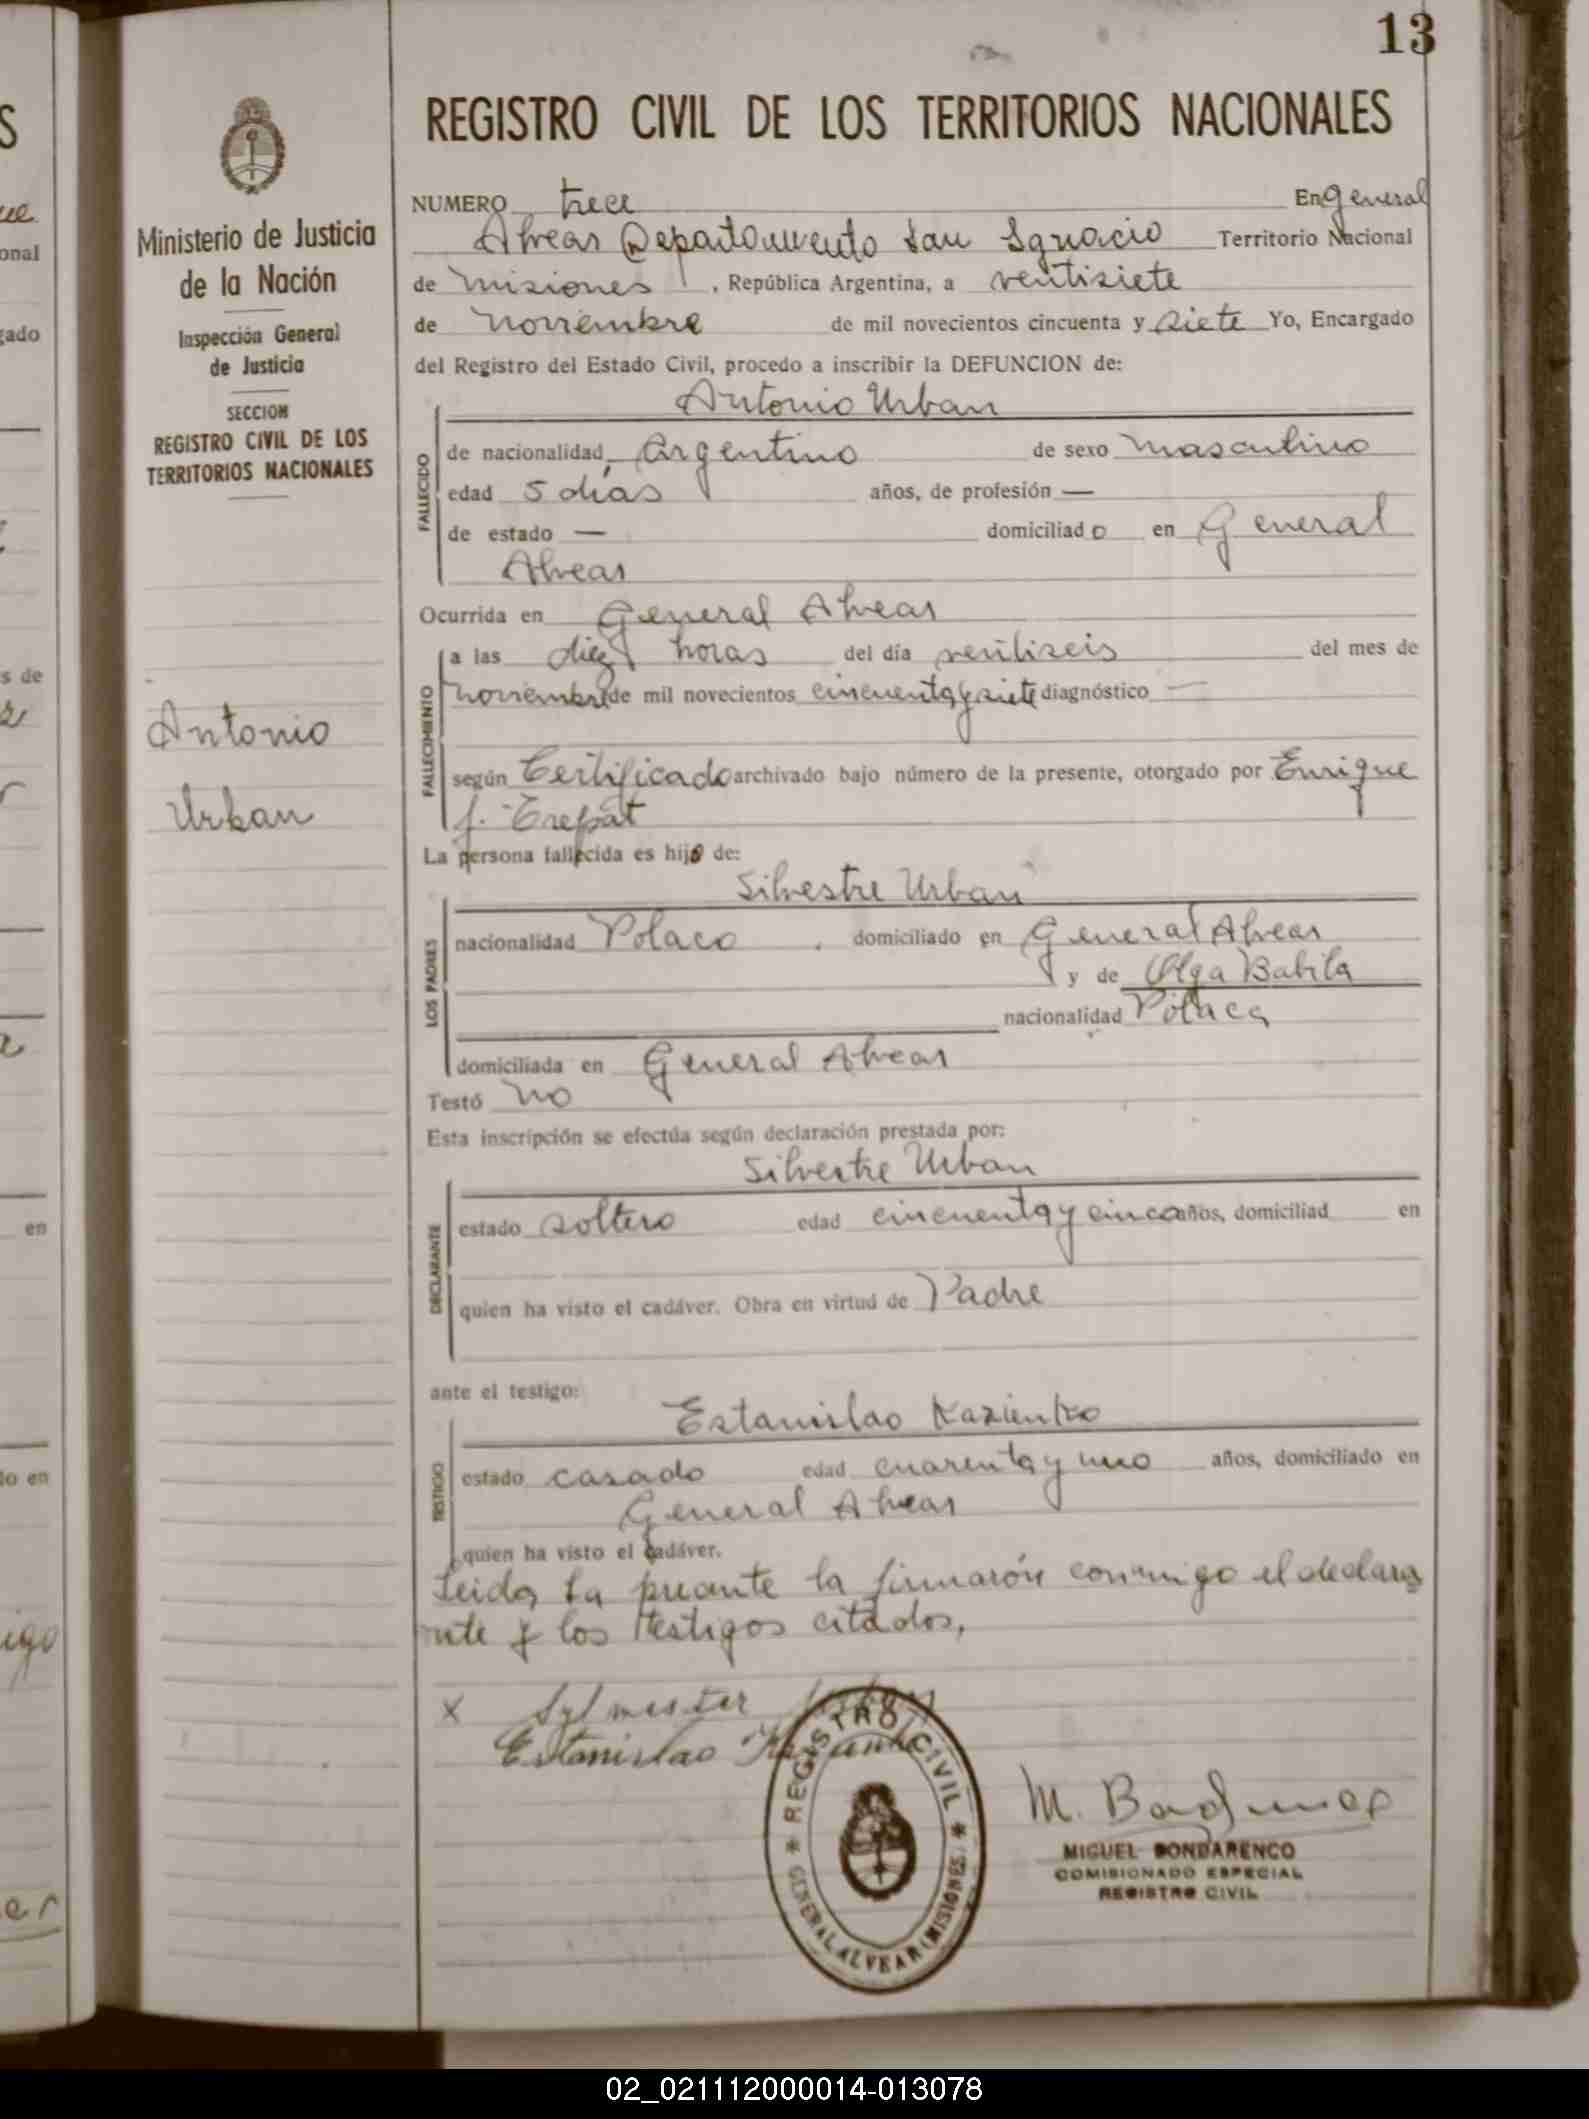 13
REGISTRO CIVIL DE LOS TERRITORIOS NACIONALES
Ministerio de Justicia
de la Nación
Inspección General
de Justicia
SECCION
REGISTRO CIVIL DE LOS
TERRITORIOS NACIONALES
Antonio
Urban
NUMERO trece En General
Alvear Departamento San Ignacio Territorio Nacional
de Misiones, República Argentina, a ventisiete
de noviembre de mil novecientos cincuenta y siete Yo, Encargado
del Registro del Estado Civil, procedo a inscribir la DEFUNCION de:
Antonio Urban
FALLECIDO
de nacionalidad Argentino de sexo masculino
edad 5 días años, de profesión —
de estado — domiciliado en General
Alvear
Ocurrida en General Alvear
FALLECIMIENTO
a las diez horas del día ventiseis del mes de
noviembre de mil novecientos cincuenta y siete diagnóstico —
según Certificado archivado bajo número de la presente, otorgado por Enrique
J. Trepat
La persona fallecida es hijo de:
Silvestre Urban
LOS PADRES
nacionalidad Polaco domiciliado en General Alvear
y de Olga Babila
nacionalidad Polaca
domiciliada en General Alvear
Testó No
Esta inscripción se efectúa según declaración prestada por:
Silvestre Urban
DECLARANTE
estado soltero edad cincuenta y cinco años, domiciliad en
quien ha visto el cadáver. Obra en virtud de Padre
ante el testigo:
Estanislao Kazienko
TESTIGO
estado casado edad cuarenta y uno años, domiciliado en
General Alvear
quien ha visto el cadáver.
Leida la presente la firmarón conmigo el declara
nte y los testigos citados,
X Sylwester Urban
Estanislao
REGISTRO CIVIL
GENERAL ALVEAR (MISIONES)
M. Bondarenco
MIGUEL BONDARENCO
COMISIONADO ESPECIAL
REGISTRO CIVIL
02_021112000014-013078